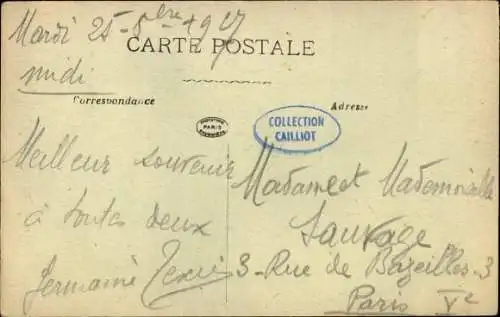 Mardi 25-8bre 1917
midi
CARTE POSTALE
Correspondance
Adresse
PARIS
COLLECTION
CAILLIOT
Meilleur souvenir
à toutes deux
Germaine
Madame et Mademoiselle
Sauvage
3 - Rue de Bazeilles - 3
Paris Ve